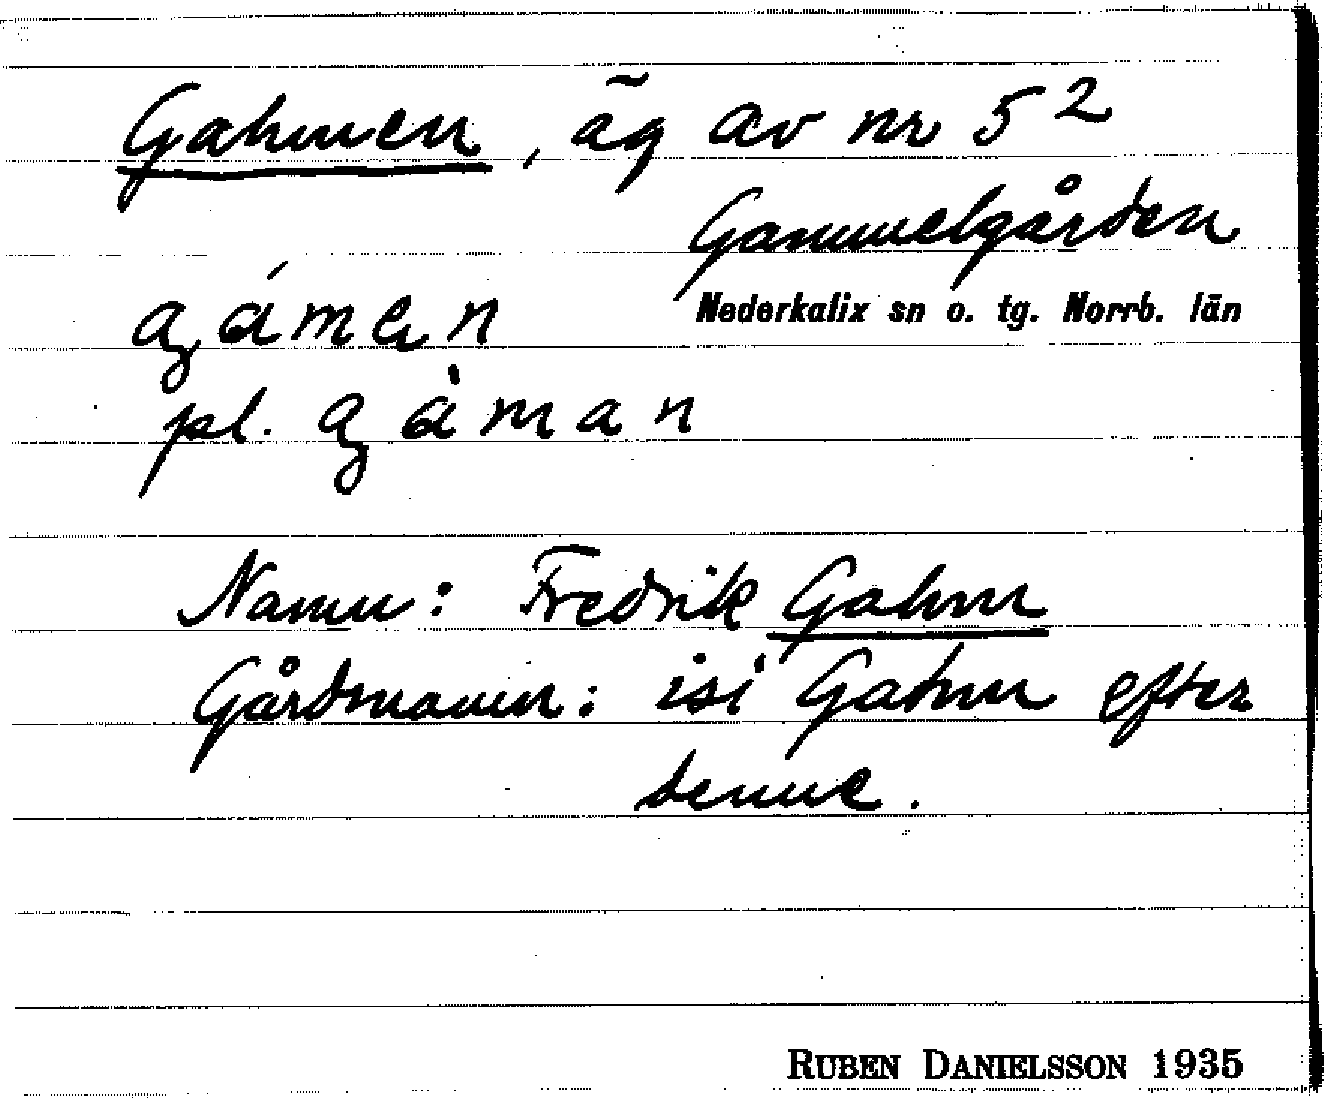 Gahmen, äg av nr 5²
Gammelgården
Nederkalix sn o. tg. Norrb. län
gámen
pl. gàman
Namn: Fredrik Gahm
Gårdmannen: isi Gahm efter
denne.
RUBEN DANIELSSON 1935